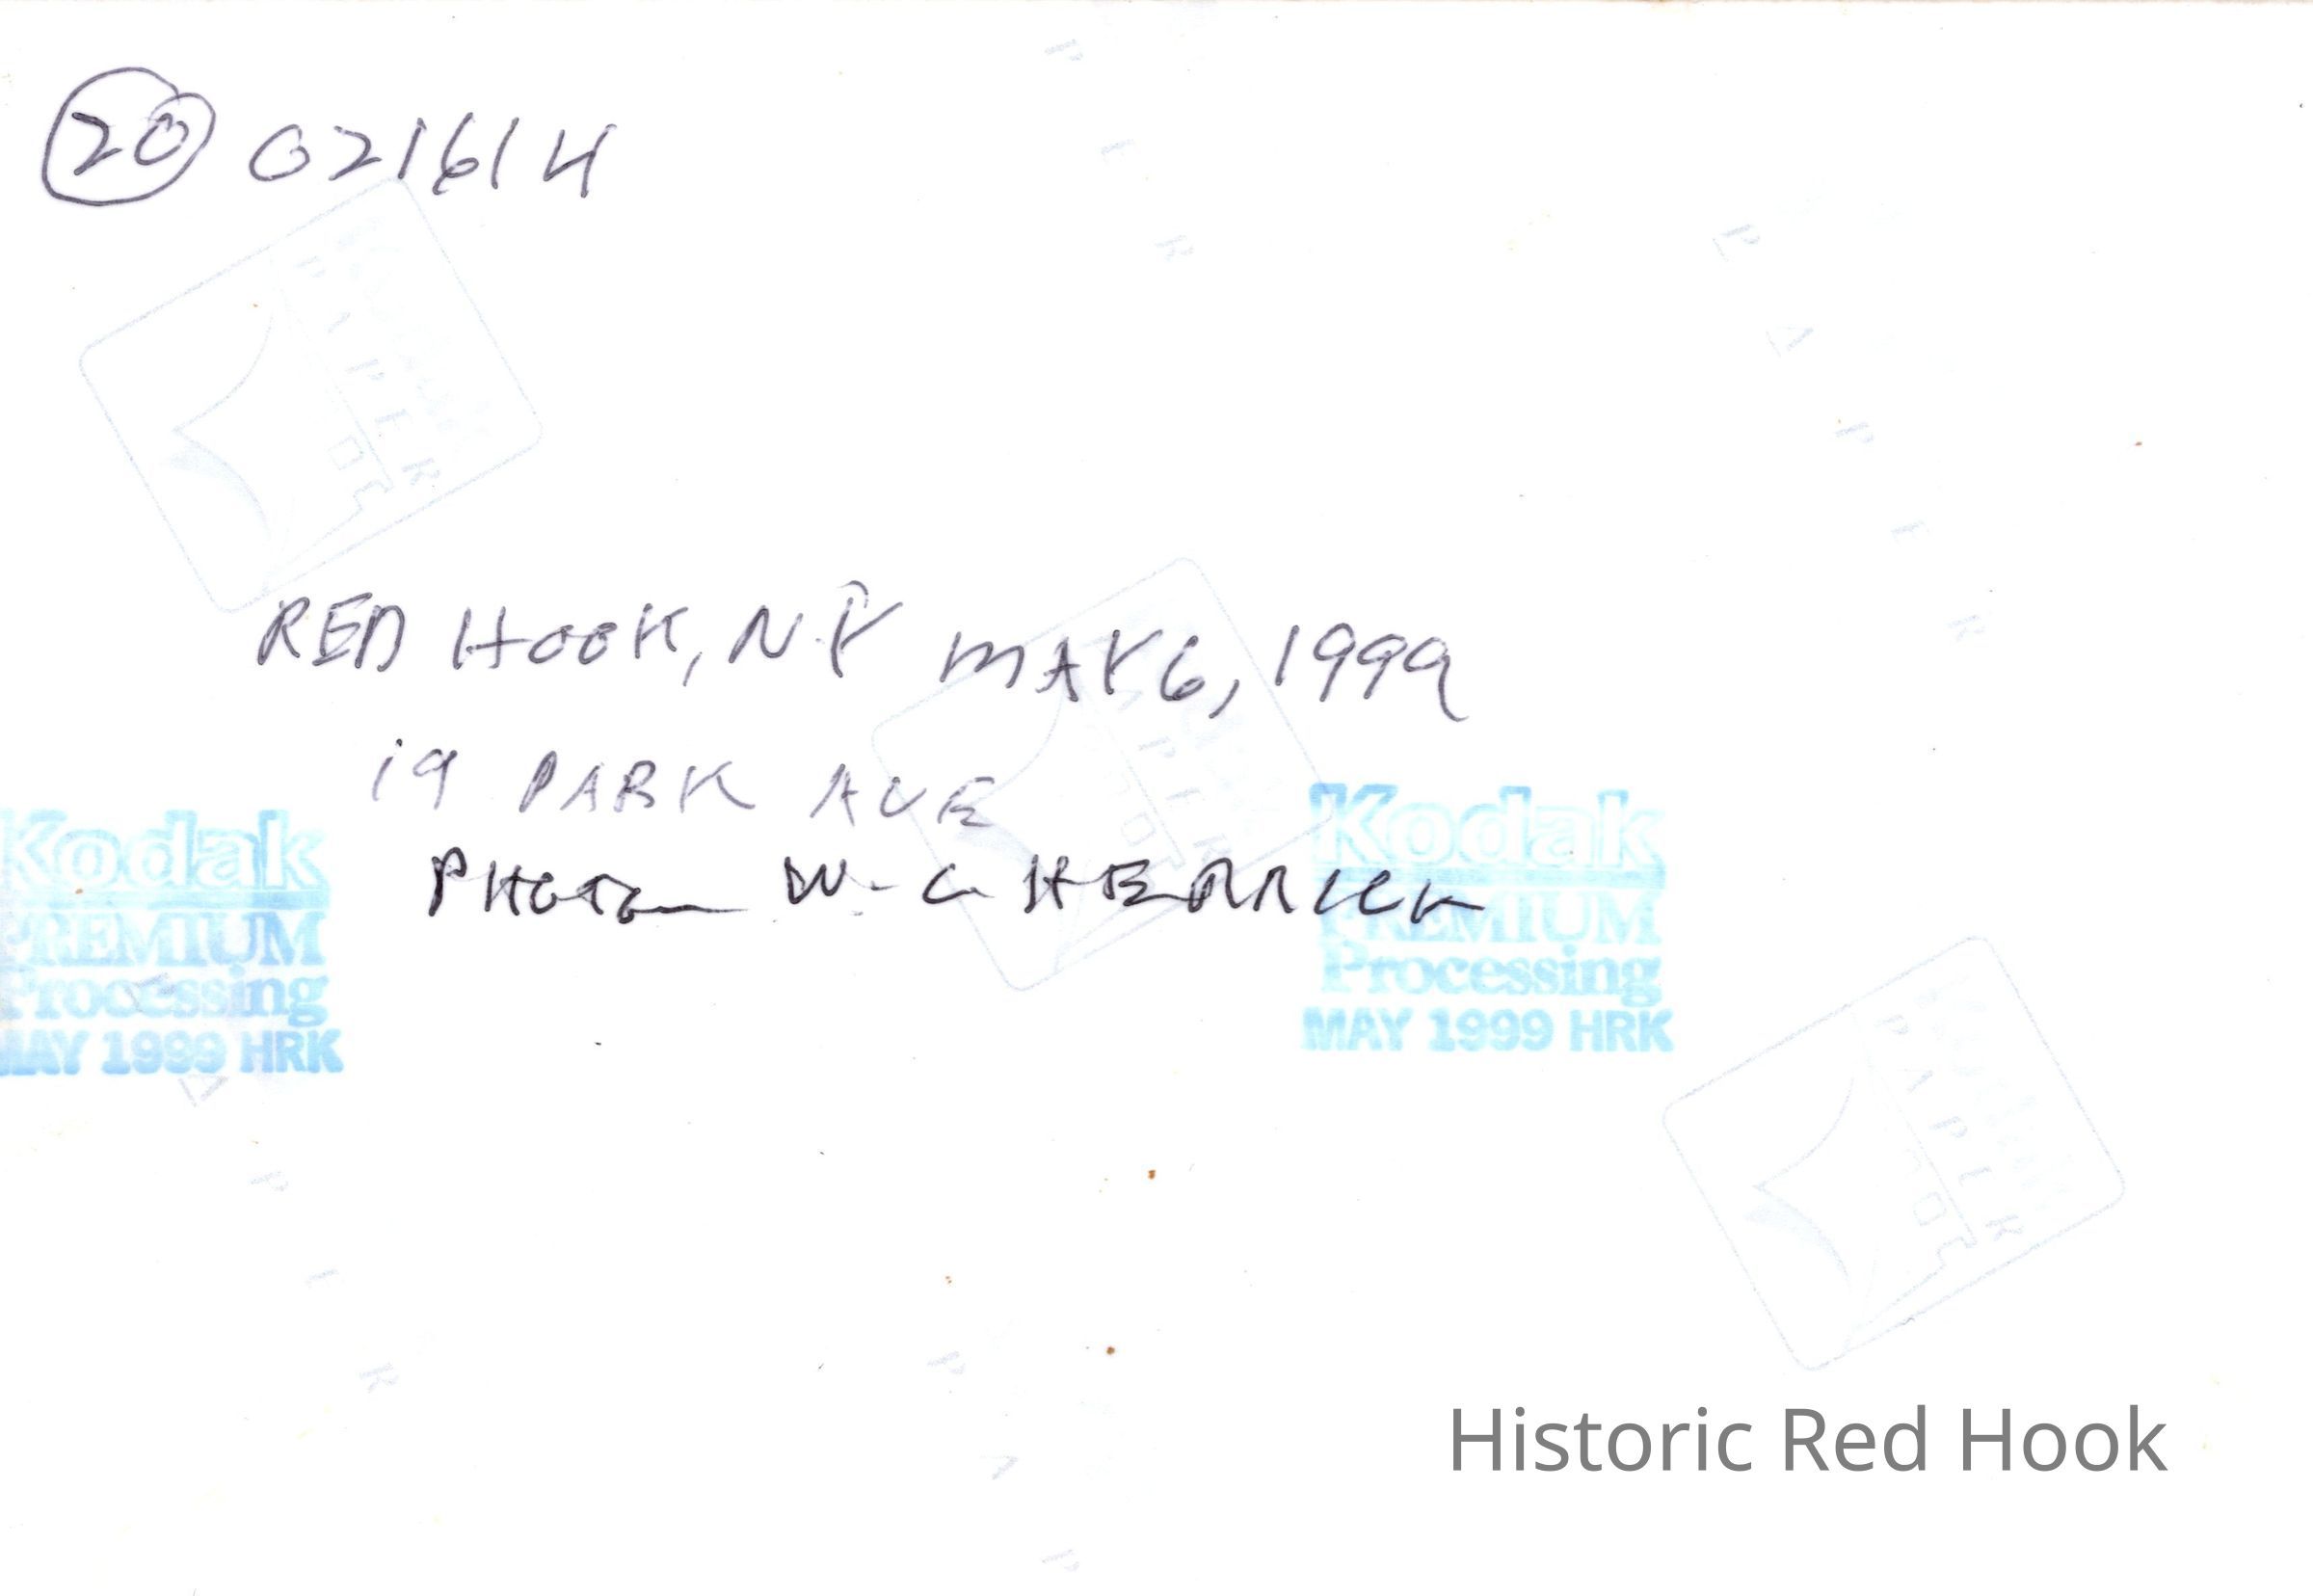 20 021614
RED HOOK, NY MAY 6, 1999
19 PARK AVE
PHOTO W. C HERRICK
Kodak
PREMIUM
Processing
MAY 1999 HRK
Kodak
PREMIUM
Processing
MAY 1999 HRK
PAPER
PAPER
PAPER
Historic Red Hook